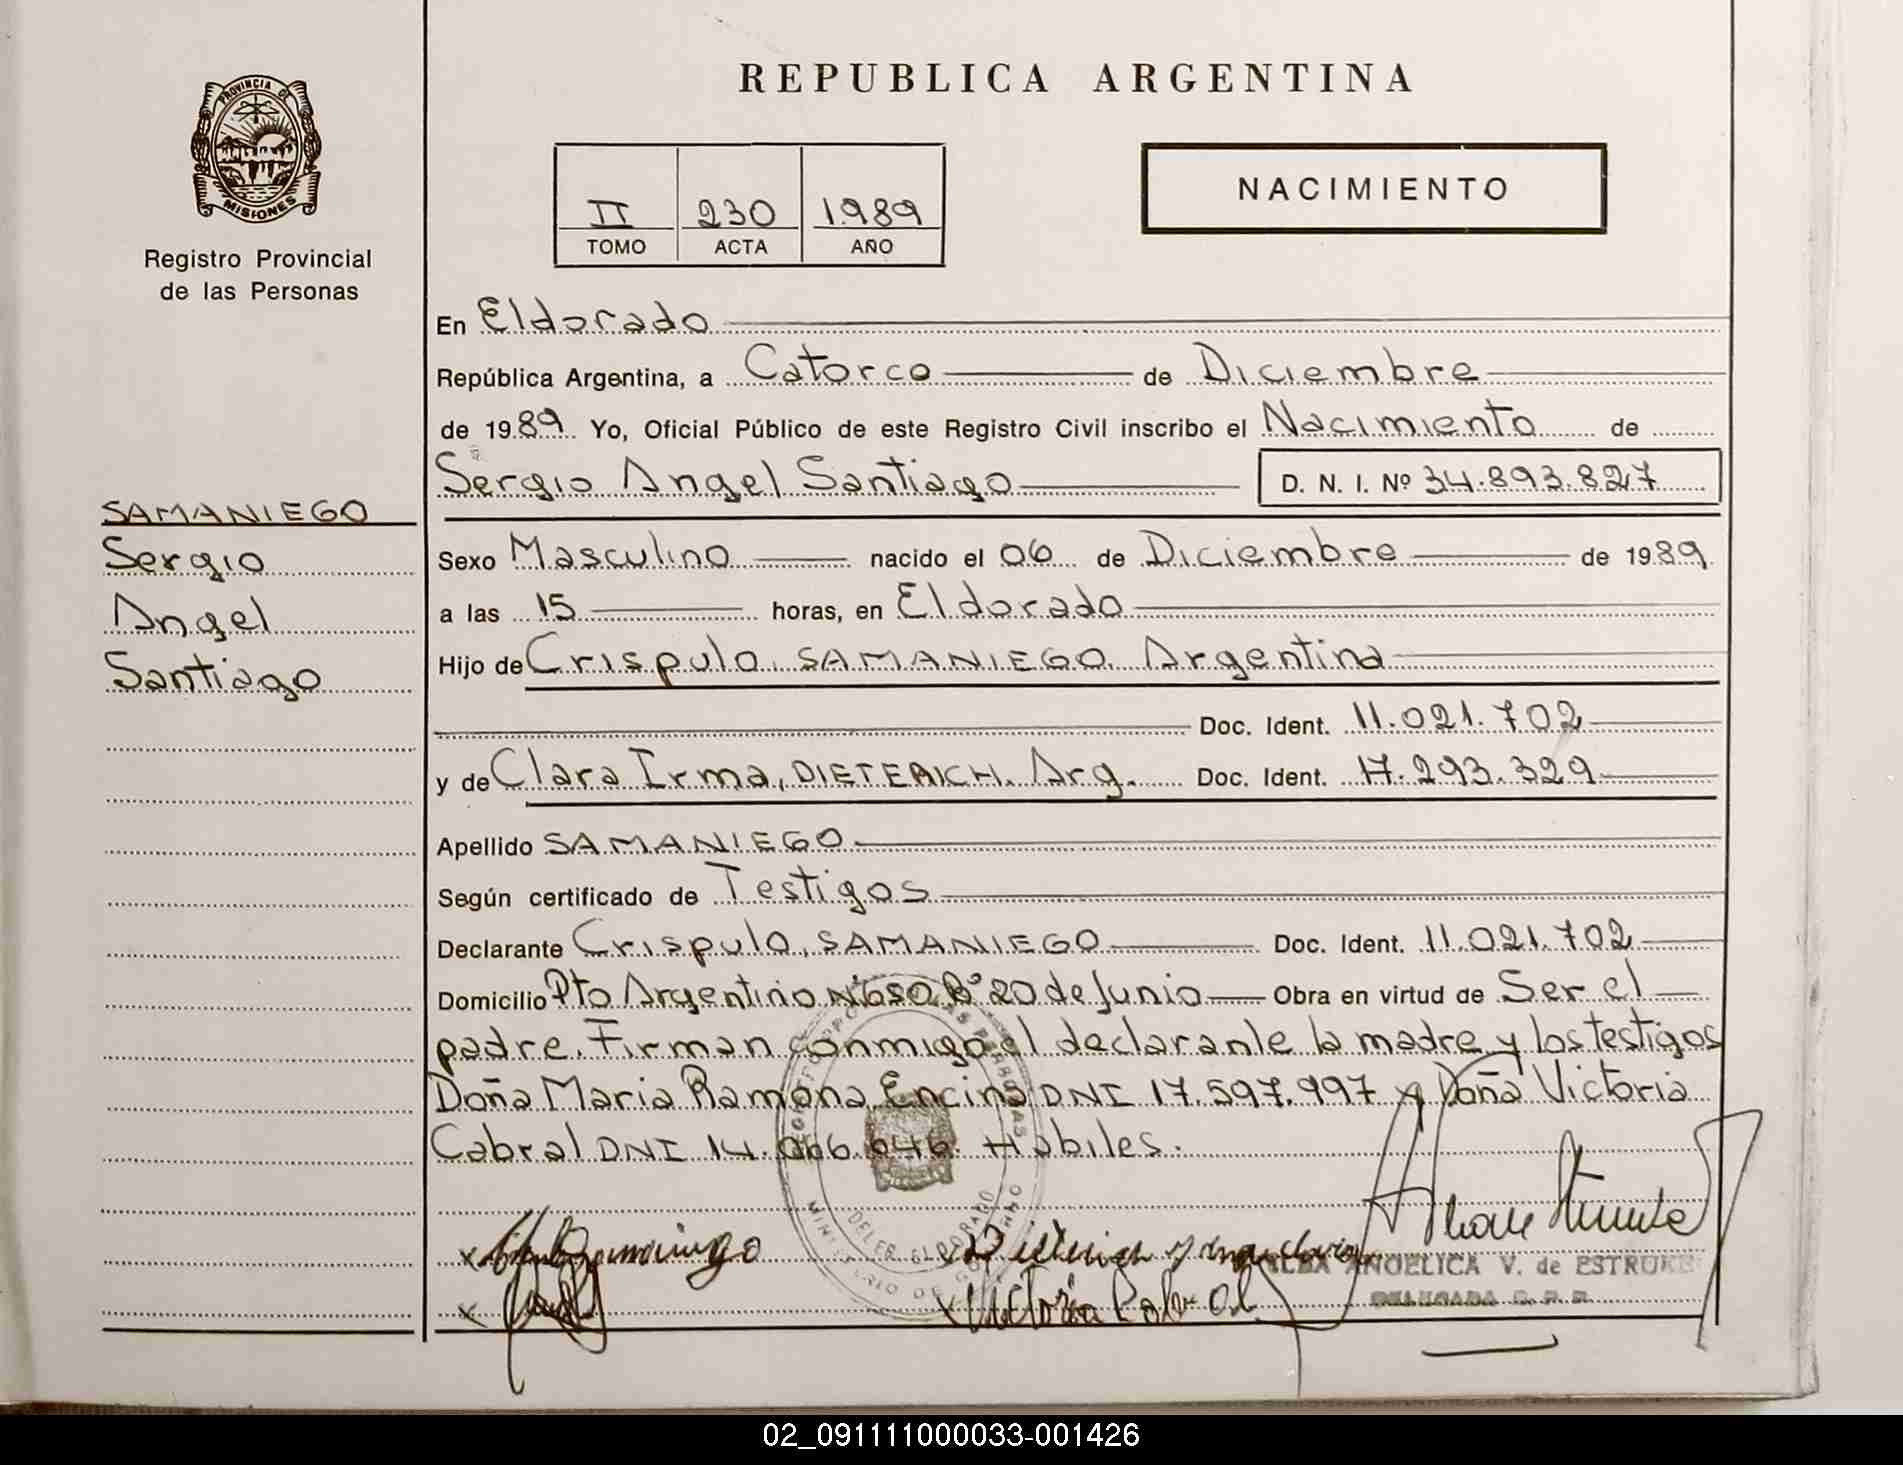 PROVINCIA DE
MISIONES
Registro Provincial
de las Personas
SAMANIEGO
Sergio
Angel
Santiago
REPUBLICA ARGENTINA
II 230 1989
TOMO ACTA AÑO
NACIMIENTO
En Eldorado
República Argentina, a Catorce de Diciembre
de 1989. Yo, Oficial Público de este Registro Civil inscribo el Nacimiento de
Sergio Angel Santiago D. N. I. Nº 34.893.827
Sexo Masculino nacido el 06 de Diciembre de 1989
a las 15 horas, en Eldorado
Hijo de Crispulo, SAMANIEGO. Argentina
Doc. Ident. 11.021.702
y de Clara Irma, DIETERICH. Arg. Doc. Ident. 17.293.329
Apellido SAMANIEGO
Según certificado de Testigos
Declarante Crispulo, SAMANIEGO Doc. Ident. 11.021.702
Domicilio Pto Argentino Nº650 Bº 20 de Junio Obra en virtud de Ser el
padre. Firman conmigo el declarante la madre y los testigos
Doña Maria Ramona Encina DNI 17.597.997 y Doña Victoria
Cabral DNI 14.066.046. Habiles.
DELEG. ELDORADO
MINISTERIO DE GOBIERNO
Victoria Cabral
ALBA ANGELICA V. de ESTRUKE
DELEGADA R. P. P.
02_091111000033-001426